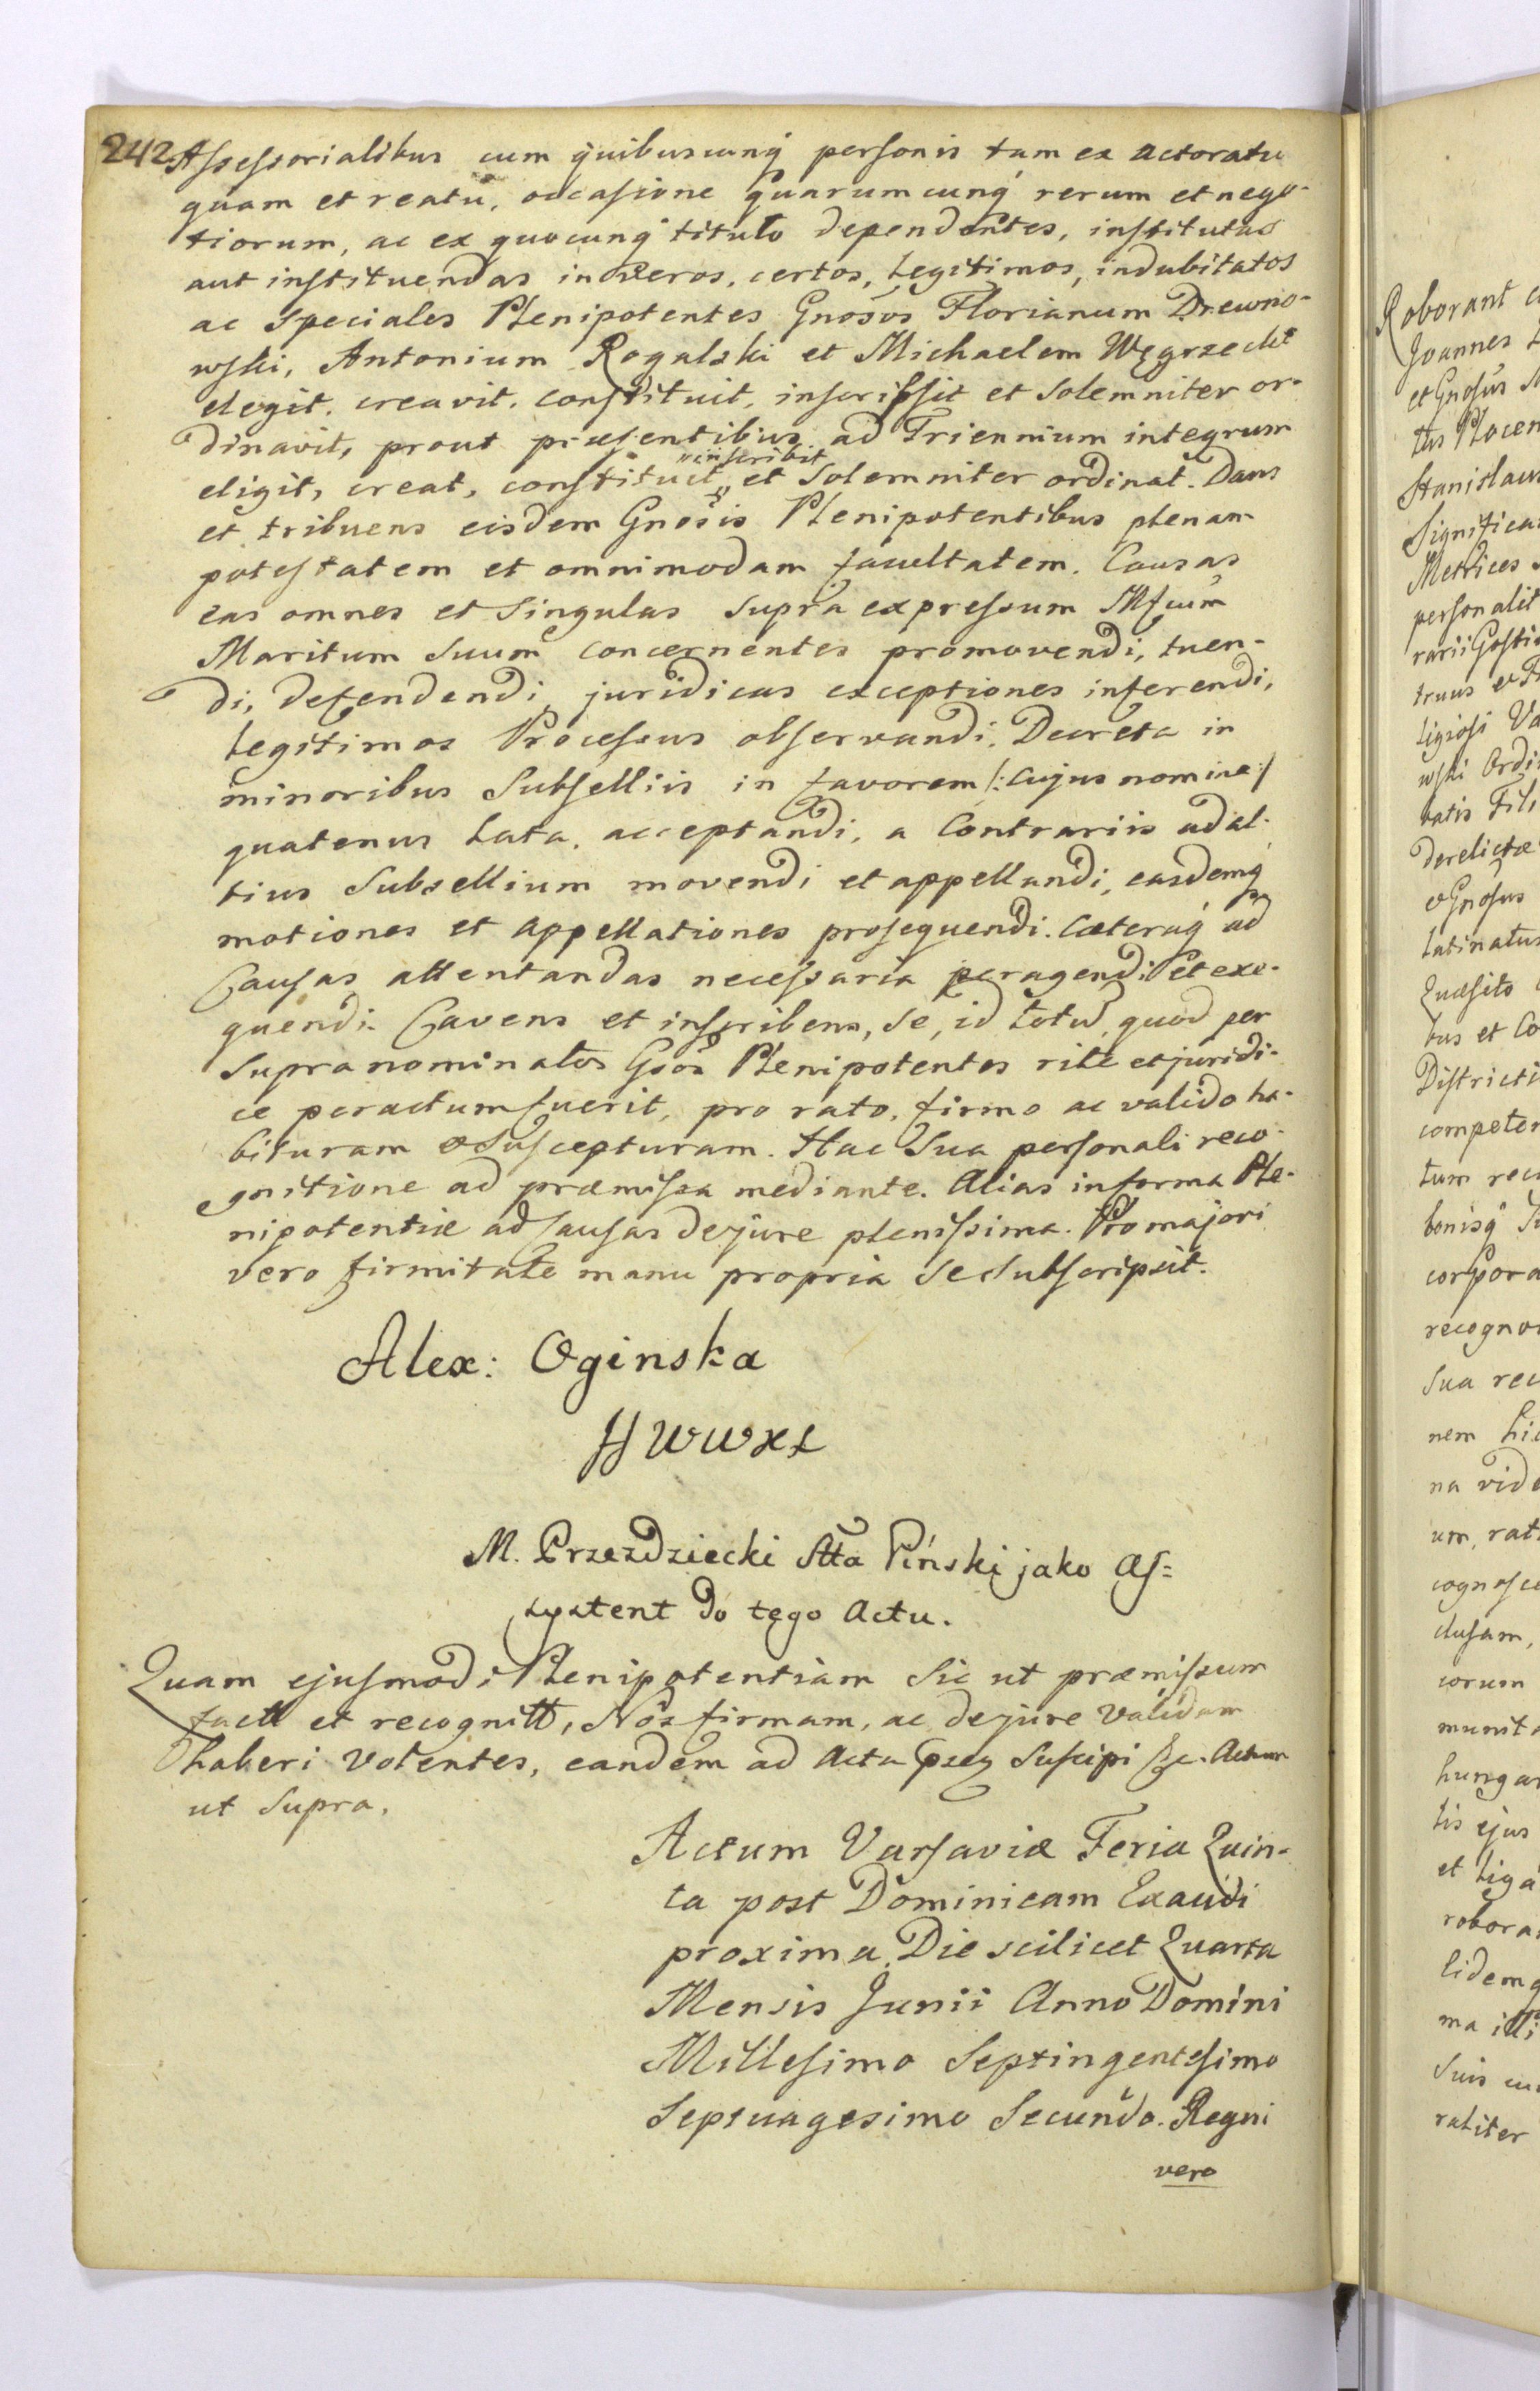 242
Assessorialibus cum quibuscunq́ personis tam ex Actoratu
quam et reatu, occasione quarumcunq́ rerum et nego-
tiorum, ac ex quocunq́ titulo dependentes, institutas
aut instituendas in Veros, certos, Legitimos, indubitatos
ac Speciales Plenipotentes Gnosos Florianum Drewno-
wski, Antonium Rogalski et Michaelem Węgrzecki
elegit, creavit, constituit, inscripsit et Solemniter or-
dinavit, prout præsentibus ad Triennium integrum
inscribit
eligit, creat, constituit et Solemniter ordinat. Dans
et tribuens eisdem Gnosis Plenipotentibus plenam
potestatem et omnimodam facultatem. Causas
eas omnes et Singulas Supra expressum
Maritum Suum concernentes promovendi, tuen-
di, defendendi, juridicas exceptiones inferendi,
Legitimos Processus observandi, Decreta in
minoribus Subselliis in favorem /: cujus nomine :/
quatenus Lata, acceptandi, a Contrariis ad al-
tius Subsellium movendi et appellandi, easdemq́
motiones et appellationes prosequendi. Cæteraq́ ad
Causas attentandas necessaria peragendi et exe-
quendi. Cavens et inscribens, Se, id totum, quod per
Supranominatos Gsos Plenipotentes rite et juridi-
ce peractum fuerit, pro rato, firmo ac valido ha-
bituram & Suscepturam. Hac Sua personali reco-
gnitione ad præmissa mediante. Alias in forma Ple-
nipotentiæ ad Causas de jure plenissima. Pro majori
vero firmitate manu propria Se Subscripsit.
Alex: Oginska
HWWXL
M. Przezdziecki Stta Pínski jako As=
systent do tego Actu.
Quam ejusmodi Plenipotentiam Sic ut præmissum
factt et recognitt, Nos firmam, ac de jure validam
haberi Volentes, eandem ad Acta Suscipi &c. Actum
ut Supra.
Actum Varsaviæ Feria Quin-
ta post Dominicam Exaudi
proxima, Die scilicet Quarta
Mensis Junii Anno Domini
Millesimo Septingentesimo
Septuagesimo Secundo. Regni
vero
Roborant
Joannes
et Gnosus
Stanislaus
Metrices
derelictæ
& Gnosus
Quæsito
tus et Co
Districti
competen
tum rec
corpora
recogno
Sua rec
nem hi
na vid
um, rat
cognosce
clusam,
corum
munit
hunga
tis ejus
et Liga
robora
lidemq
ma illi
Suis cu
raliter